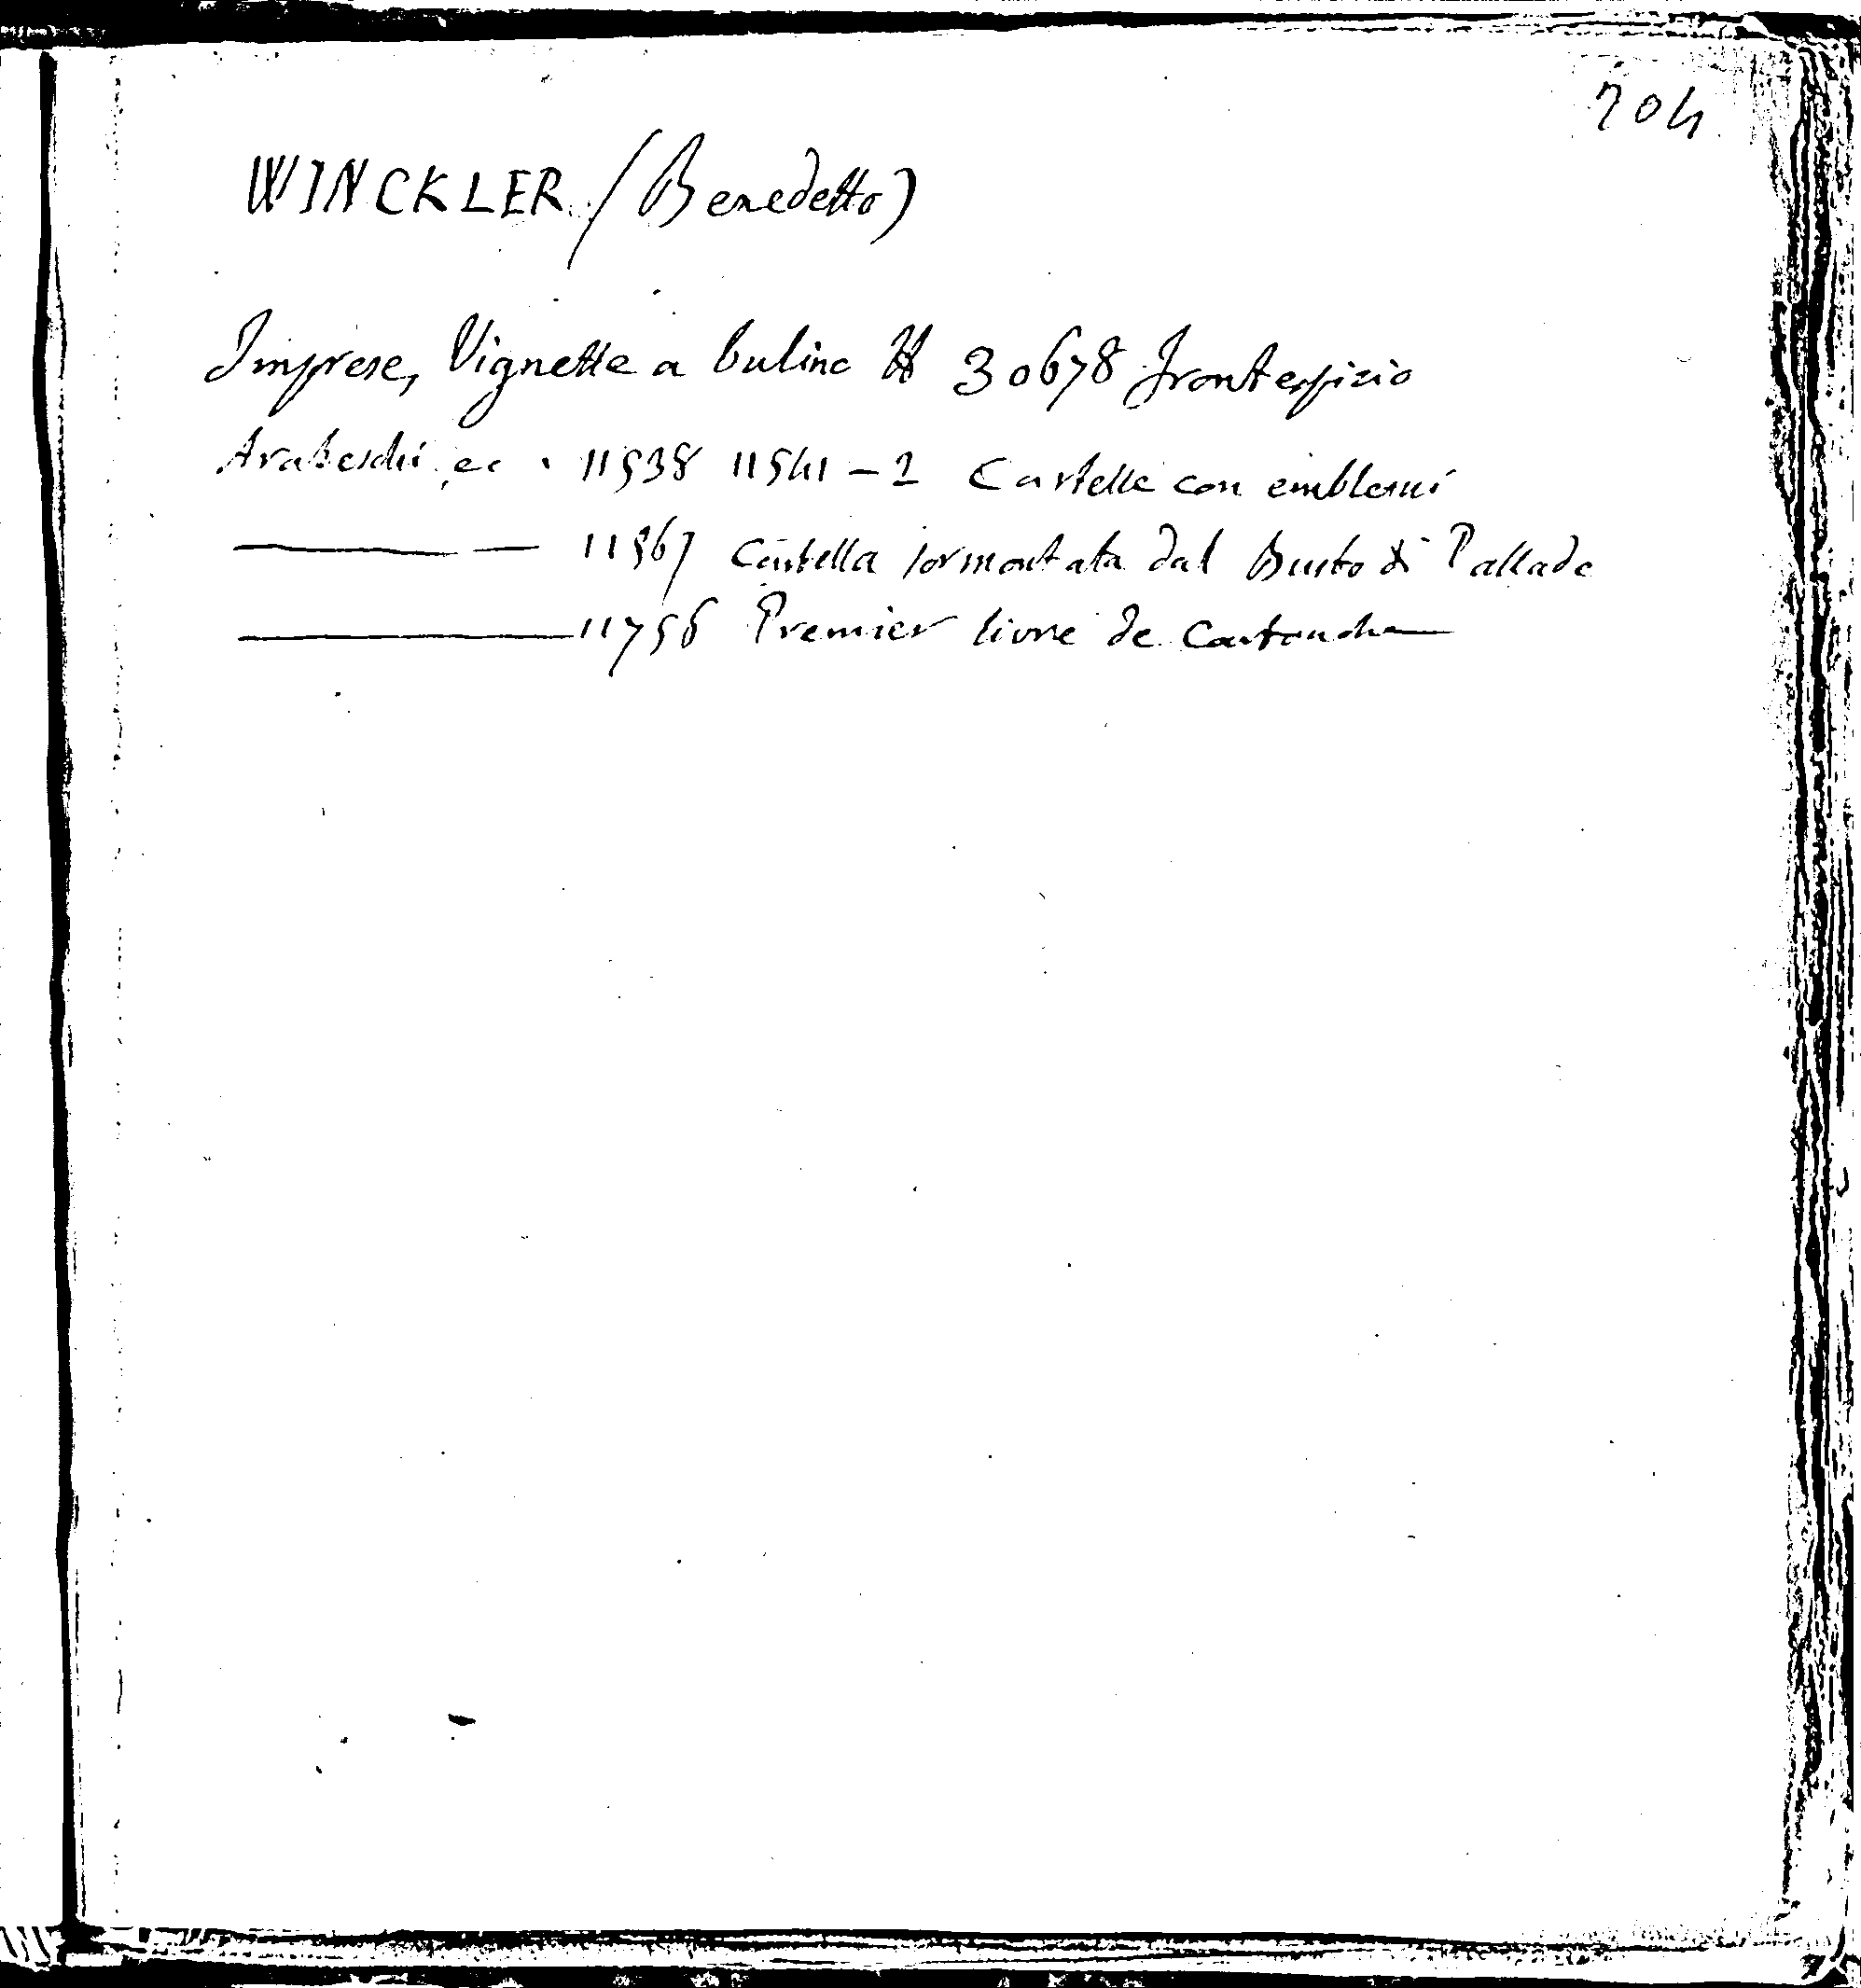 204
WINCKLER (Benedetto)
Imprese, Vignette a bulino 30678 frontespizio
Arabeschi ec. 11538 11541-2 Cartelle con emblemi
11567 Cartella sormontata dal Busto di Pallade
11756 Premier livre de Cartouche